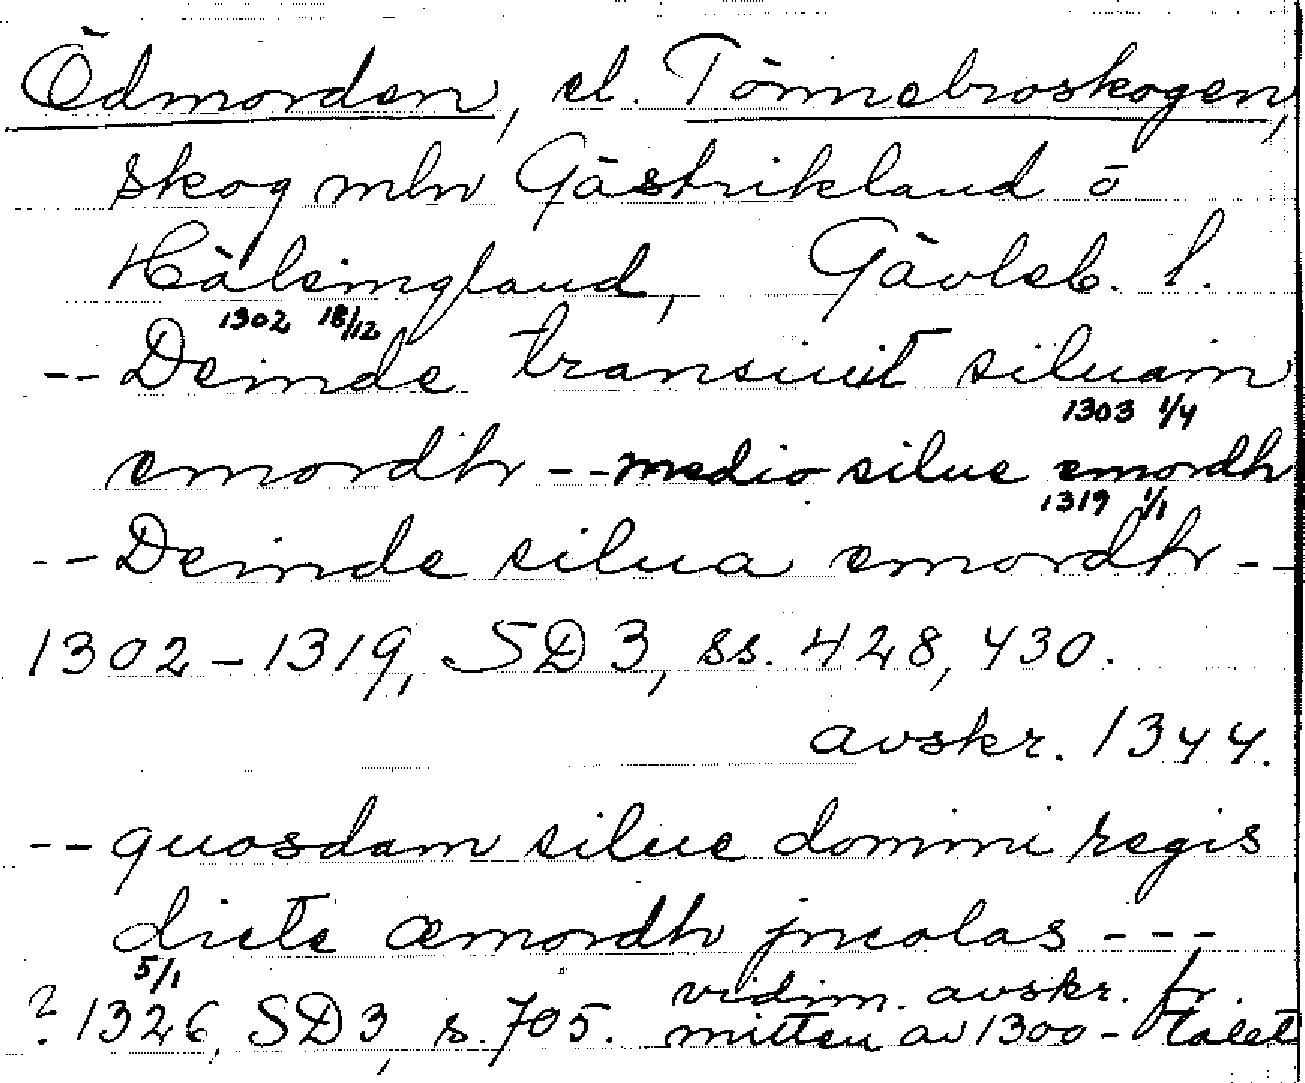 Ödmorden, el. Tönnebroskogen,
skog mln Gästrikland o
Hälsingland, Gävleb. l.
1302 18/12
-- Deinde transiuit siluam
1303 1/4
emordh -- medio silue emordh
1319 1/1
-- Deinde silua emordh --
1302-1319, SD 3, ss. 428, 430.
avskr. 1344.
-- quosdam silue domini regis
dicte æmordh jncolas ---
5/1
? 1326, SD 3, s. 705. vidim. avskr. fr.
mitten av 1300-talet